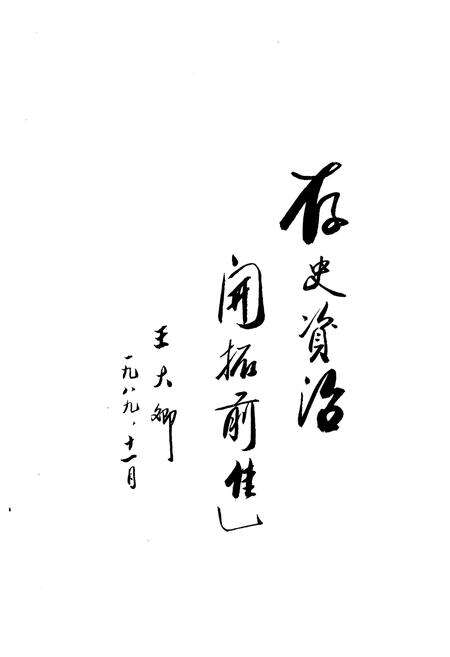 存史資治
開拓前進
王大卿
一九八九、十一月